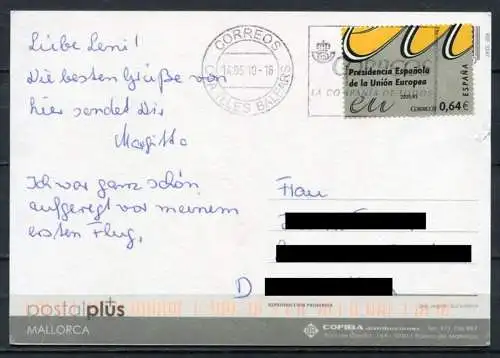 Liebe Leni!
Die besten Grüße von
hier sendet Dir
Margitta
Ich war ganz schön
aufgeregt vor meinem
ersten Flug.
CORREOS
14.05.10-16
ILLES BALEARS
CORREOS
LA COMPAÑIA DE TODOS
Presidencia Española
de la Unión Europea
eu
CORREOS
0,64 €
ESPAÑA
Frau
D
postalplus
MALLORCA
REPRODUCCIÓN PROHIBIDA
COPIBA distribuciones